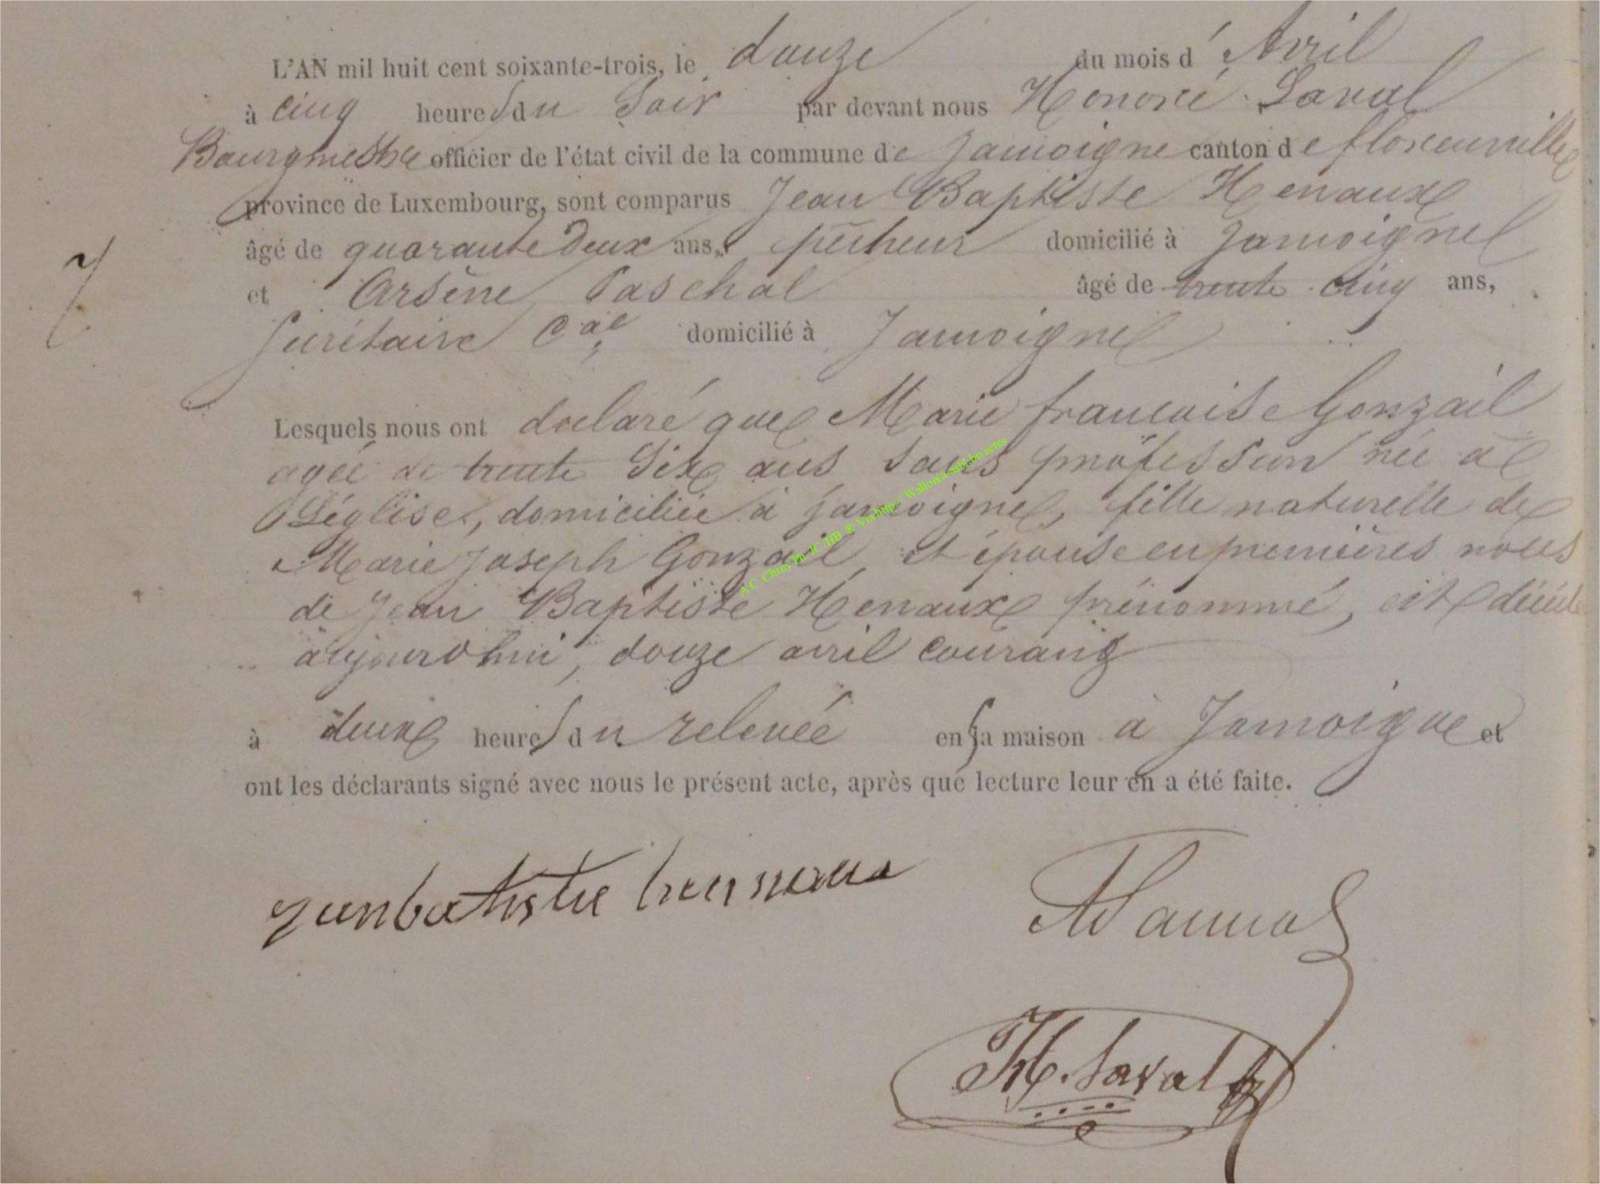 L'AN mil huit cent soixante-trois, le douze du mois d' Avril
à cinq heures du Soir par devant nous Honoré Laval
Bourgmestre officier de l'état civil de la commune de Jamoigne canton de florenville
province de Luxembourg, sont comparus Jean Baptiste Henaux
âgé de quarante deux ans, pêcheur domicilié à Jamoigne
7
et Arsène Paschal âgé de trente cinq ans,
Secrétaire Cal domicilié à Jamoigne
Lesquels nous ont déclaré que Marie francoise Gonzail
agée de trente Six ans Sans profession née à
Léglise, domiciliée à Jamoigne, fille naturelle de
Marie Joseph Gonzail et épouse en premières noces
de Jean Baptiste Hénaux prénommé, est décédé
aujourdhui, douze avril courant
à deux heures du relevée en sa maison à Jamoigne et
ont les déclarants signé avec nous le présent acte, après que lecture leur en a été faite.
H. Laval